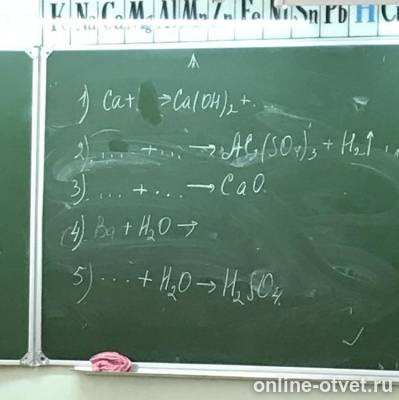 K Na Ca Mg Al Mn Zn Fe Ni Sn Pb H
1) Ca + → Ca(OH)₂ + ...
2) ... + ... → Al₂(SO₄)₃ + H₂↑
3) ... + ... → CaO
4) Ba + H₂O →
5) ... + H₂O → H₂SO₄
online-otvet.ru